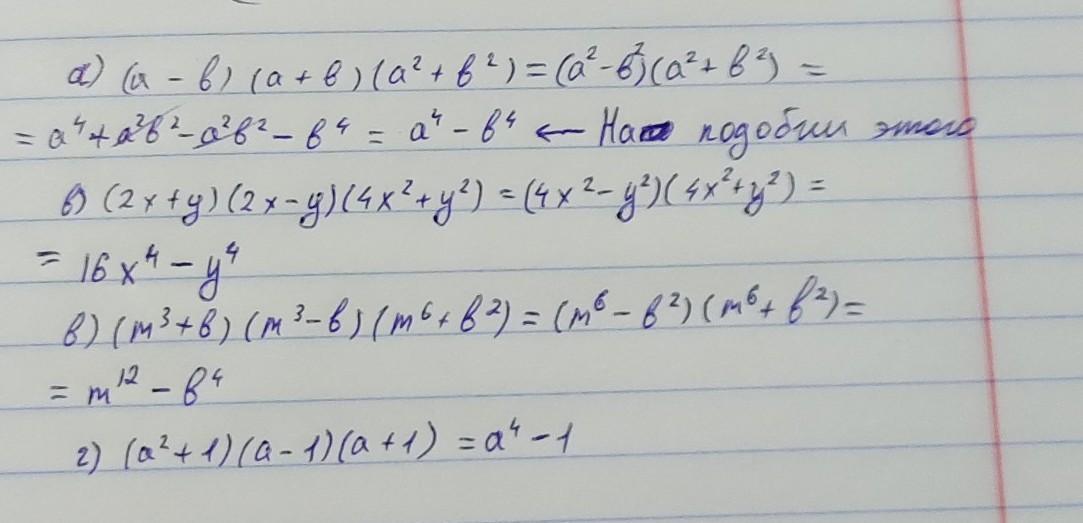 а) (a - b) (a + b) (a² + b²) = (a² - b²)(a² + b²) =
= a⁴ + a²b² - a²b² - b⁴ = a⁴ - b⁴ ← На подобии этого
б) (2x + y) (2x - y) (4x² + y²) = (4x² - y²) (4x² + y²) =
= 16x⁴ - y⁴
в) (m³ + b) (m³ - b) (m⁶ + b²) = (m⁶ - b²) (m⁶ + b²) =
= m¹² - b⁴
г) (a² + 1) (a - 1) (a + 1) = a⁴ - 1